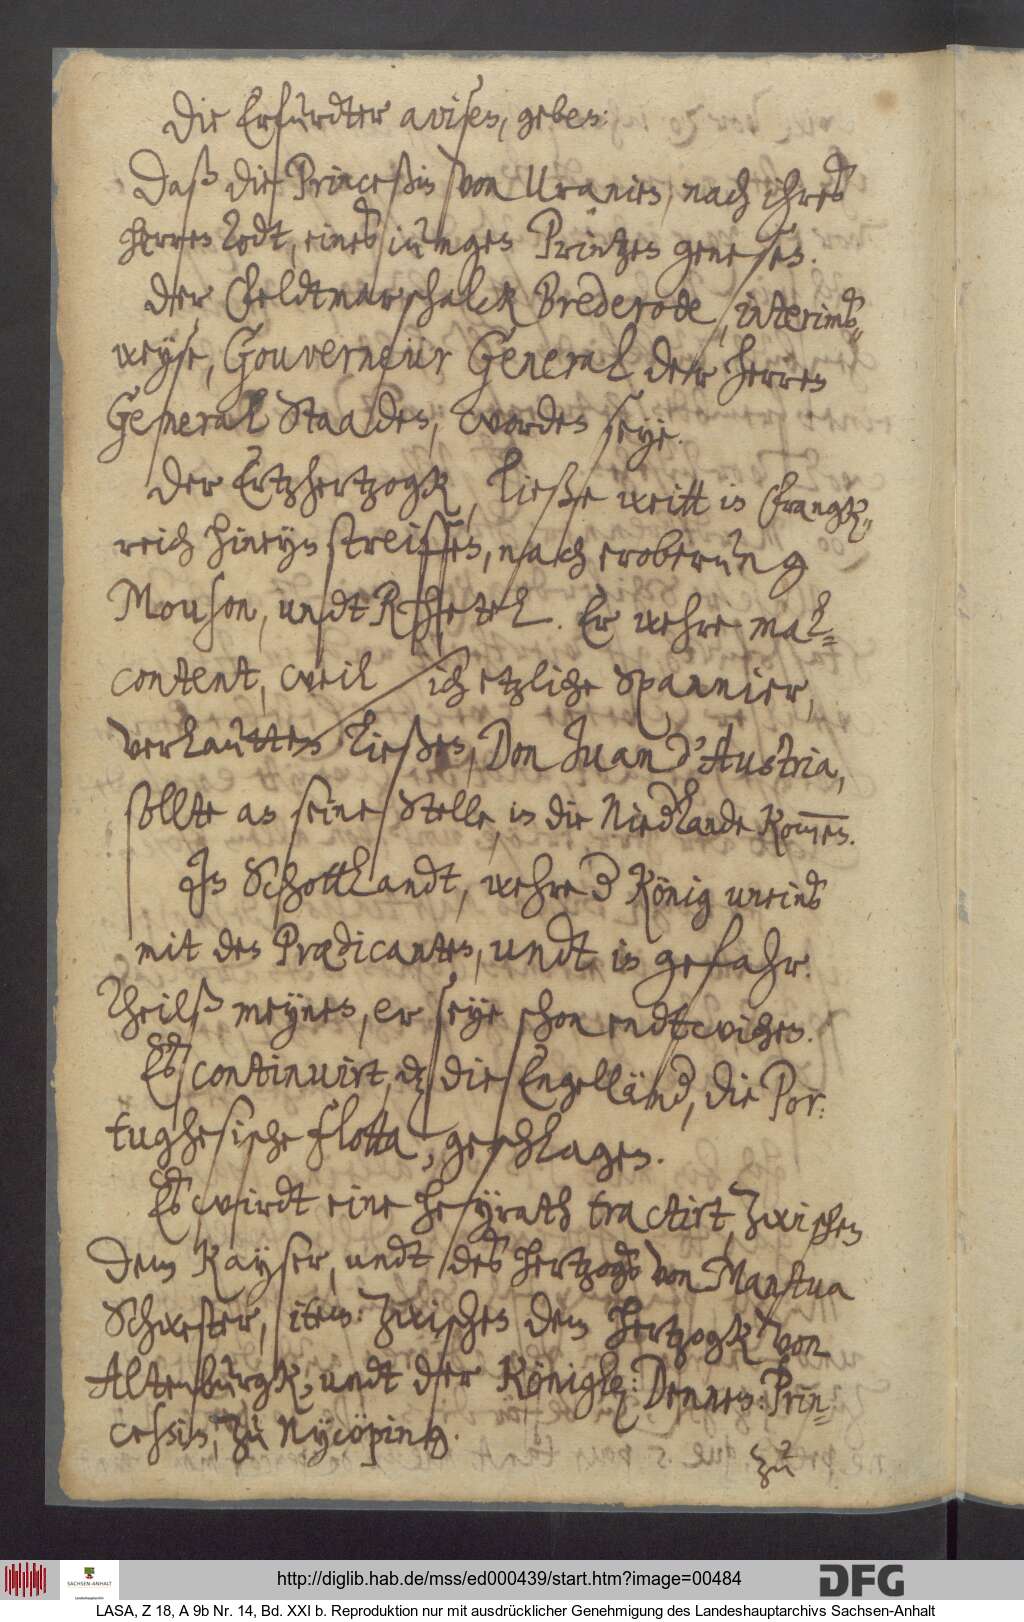 Die Erfurdter avisen, geben:
Daß die Princeßin von Uranien, nach ihres
herren Todt, eines iungen Printzen genesen.
Der Feldtmarschalck Brederode, interims-
weyse, Gouverneur General der herren
General Staaden, worden seye.
Der Ertzhertzogk, ließe weitt in Franck-
reich hineyn streiffen, nach eroberung
Mouson, undt Rhetel. Er wehre mal-
content, weil sich etzliche Spannier,
verlautten ließen, Don Juan d'Austria,
sollte an seine Stelle, in die Niedlande kommen.
In Schottlandt, wehre d König uneins
mit den Prædicanten, undt in gefahr.
Theilß meynen, er seye schon endtwichen.
Es continuirt, dz die Engelländ, die Por-
tughesische flotta, geschlagen.
Es wirdt eine heyrath tractirt, zwischen
dem Kayser, undt des hertzogs von Mantua
Schwester, item: zwischen dem hertzogk von
Altenburgk, undt der Königl: Dennen: Prin-
cessin, zu Nycöping.
zu
http://diglib.hab.de/mss/ed000439/start.htm?image=00484
SACHSEN-ANHALT
Landeshauptarchiv
DFG
LASA, Z 18, A 9b Nr. 14, Bd. XXI b. Reproduktion nur mit ausdrücklicher Genehmigung des Landeshauptarchivs Sachsen-Anhalt